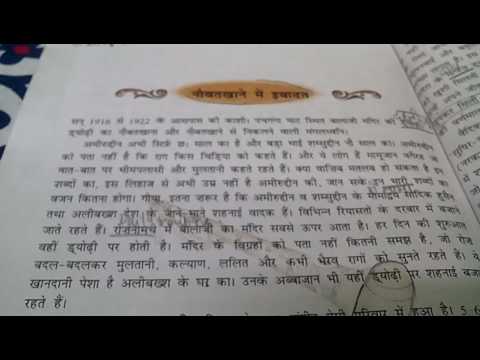 नौबतखाने में इबादत
सन् 1916 से 1922 के आसपास की काशी। पंचगंगा घाट स्थित बालाजी मंदिर की
ड्योढ़ी। ड्योढ़ी का नौबतखाना और नौबतखाने से निकलने वाली मंगलध्वनि।
अमीरुद्दीन अभी सिर्फ़ छः साल का है और बड़ा भाई शम्सुद्दीन नौ साल का। अमीरुद्दीन
को पता नहीं है कि राग किस चिड़िया को कहते हैं। और ये लोग हैं मामूजान वगैरह जो
बात-बात पर भीमपलासी और मुलतानी कहते रहते हैं। क्या वाजिब मतलब हो सकता है इन
शब्दों का, इस लिहाज से अभी उम्र नहीं है अमीरुद्दीन की, जान सके इन भारी शब्दों का
वजन कितना होगा। गोया, इतना जरूर है कि अमीरुद्दीन व शम्सुद्दीन के मामाद्वय सादिक हुसैन
तथा अलीबख्श देश के जाने-माने शहनाई वादक हैं। विभिन्न रियासतों के दरबार में बजाने
जाते रहते हैं। रोजनामचे में बालाजी का मंदिर सबसे ऊपर आता है। हर दिन की शुरुआत
वहीं ड्योढ़ी पर होती है। मंदिर के विग्रहों को पता नहीं कितनी समझ है, जो रोज
बदल-बदलकर मुलतानी, कल्याण, ललित और कभी भैरव रागों को सुनते रहते हैं। ये
खानदानी पेशा है अलीबख्श के घर का। उनके अब्बाजान भी यहीं ड्योढ़ी पर शहनाई बजा
रहते हैं।
परिवार में हुआ है। 5-6